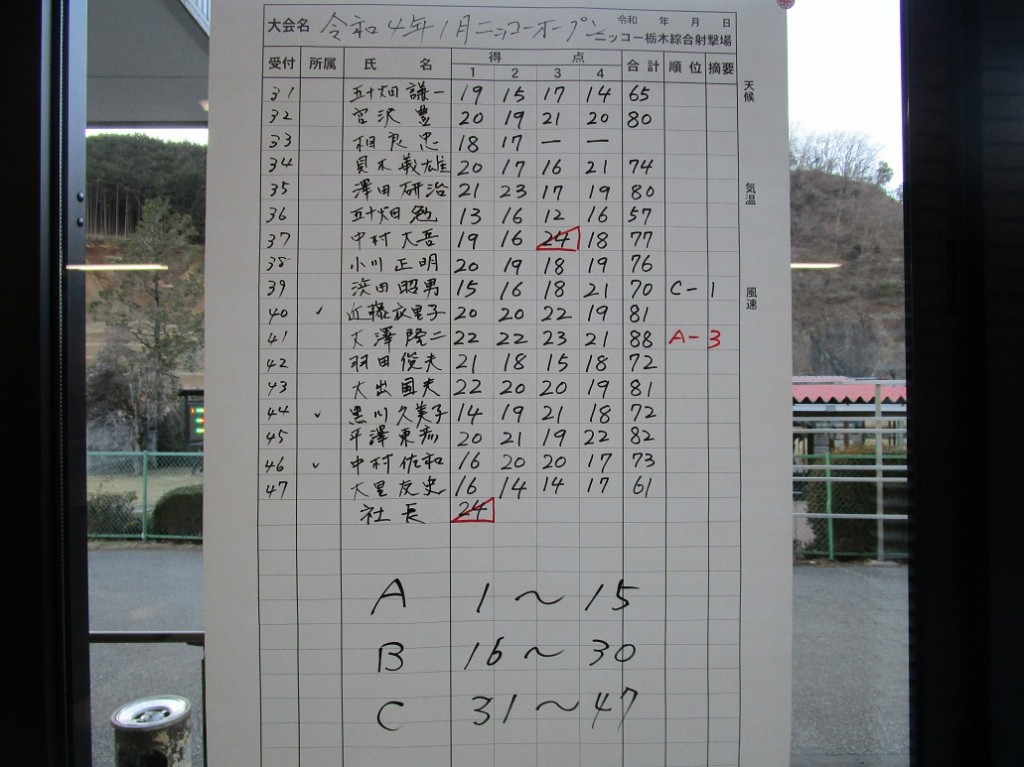 大会名 令和4年1月ニッコーオープン 令和 年 月 日
ニッコー栃木綜合射撃場
受付 所属 氏 名 得 点 合計 順位 摘要
1 2 3 4
天候
31 五十畑謙一 19 15 17 14 65
32 宮沢豊 20 19 21 20 80
33 相良忠 18 17 ー ー
34 貝木義雄 20 17 16 21 74
35 澤田研治 21 23 17 19 80
気温
36 五十畑勉 13 16 12 16 57
37 中村大吾 19 16 24 18 77
38 小川正明 20 19 18 19 76
39 浜田昭男 15 16 18 21 70 C-1
風速
40 ✓ 近藤衣里子 20 20 22 19 81
41 大澤隆二 22 22 23 21 88 A-3
42 羽田俊夫 21 18 15 18 72
43 大出国夫 22 20 20 19 81
44 ✓ 黒川久美子 14 19 21 18 72
45 平澤東彦 20 21 19 22 82
46 ✓ 中村佐和 16 20 20 17 73
47 大里友史 16 14 14 17 61
社長 24
A 1〜15
B 16〜30
C 31〜47